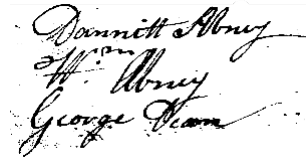 Dannitt Abney
Wm. Abney
George Dean